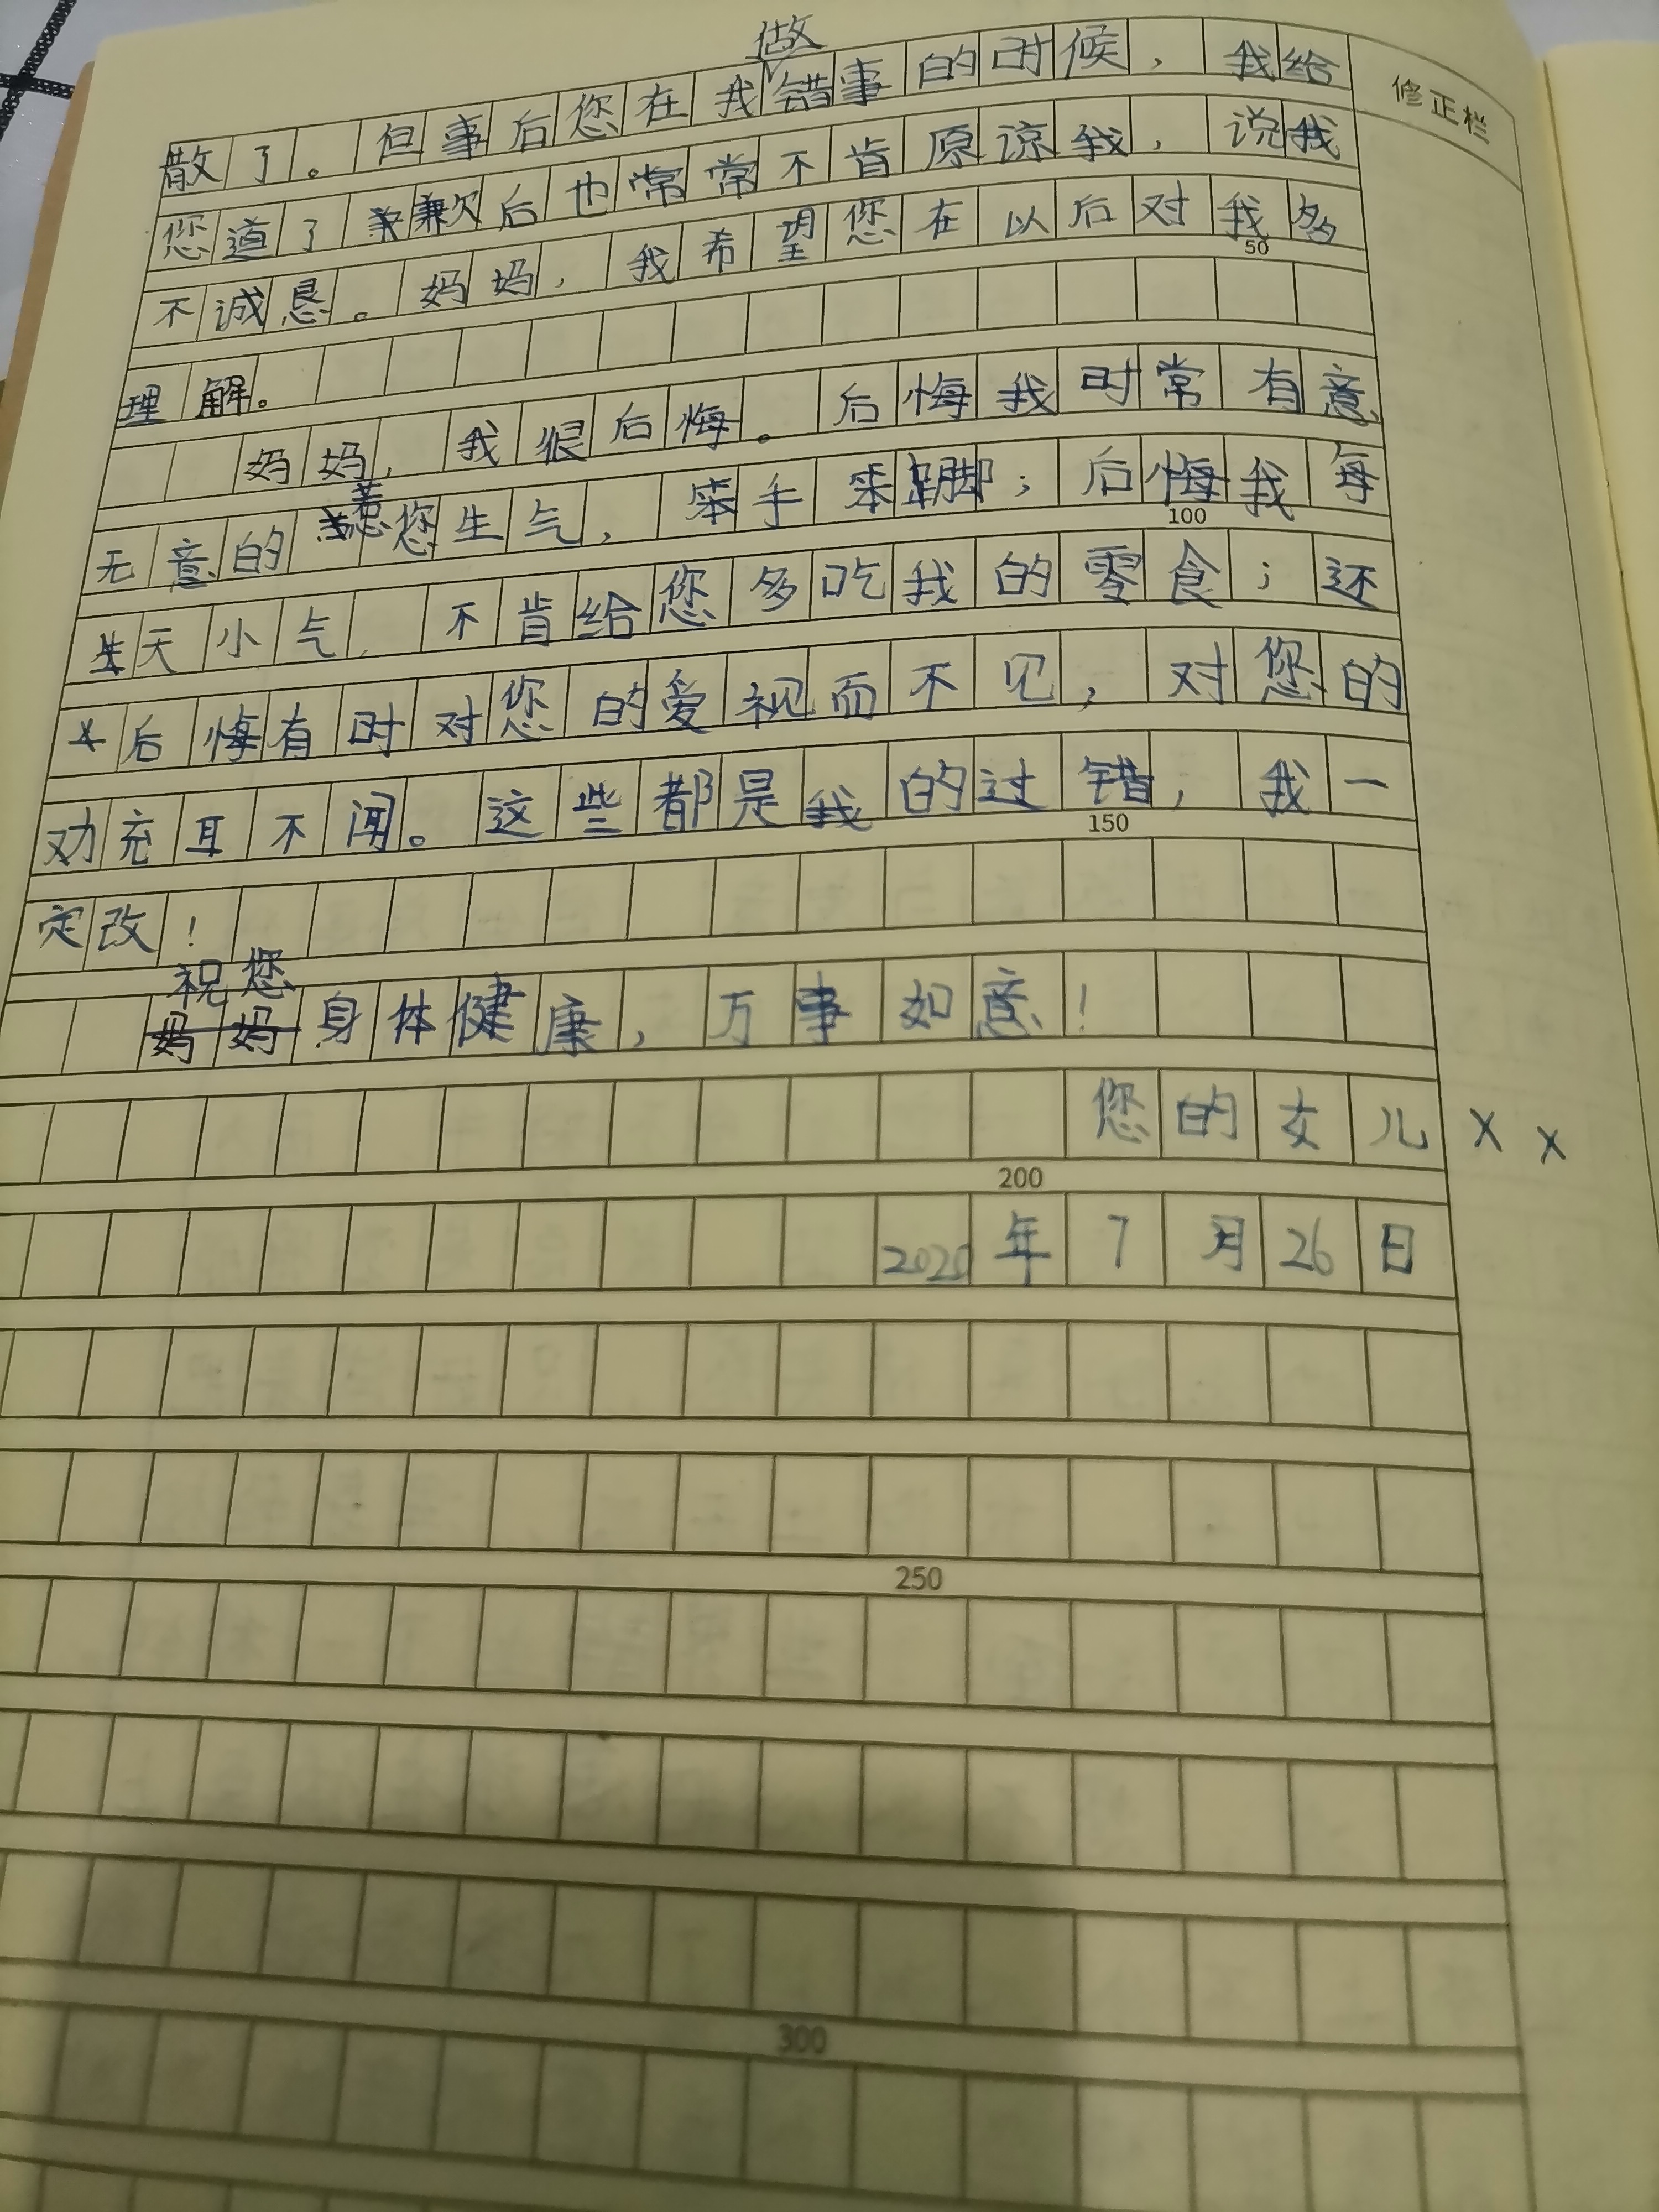 做
散了。但事后您在我错事的时候，我给
修正栏
您道了歉后也常常不肯原谅我，说我
不诚恳。妈妈，我希望您在以后对我多
50
理解。
妈妈，我很后悔。后悔我时常有意
惹
无意的您生气，笨手笨脚；后悔我每
100
天小气，不肯给您多吃我的零食；还
后悔有时对您的爱视而不见，对您的
劝充耳不闻。这些都是我的过错，我一
150
定改！
祝您
妈妈身体健康，万事如意！
您的女儿XX
200
2020年7月26日
250
300